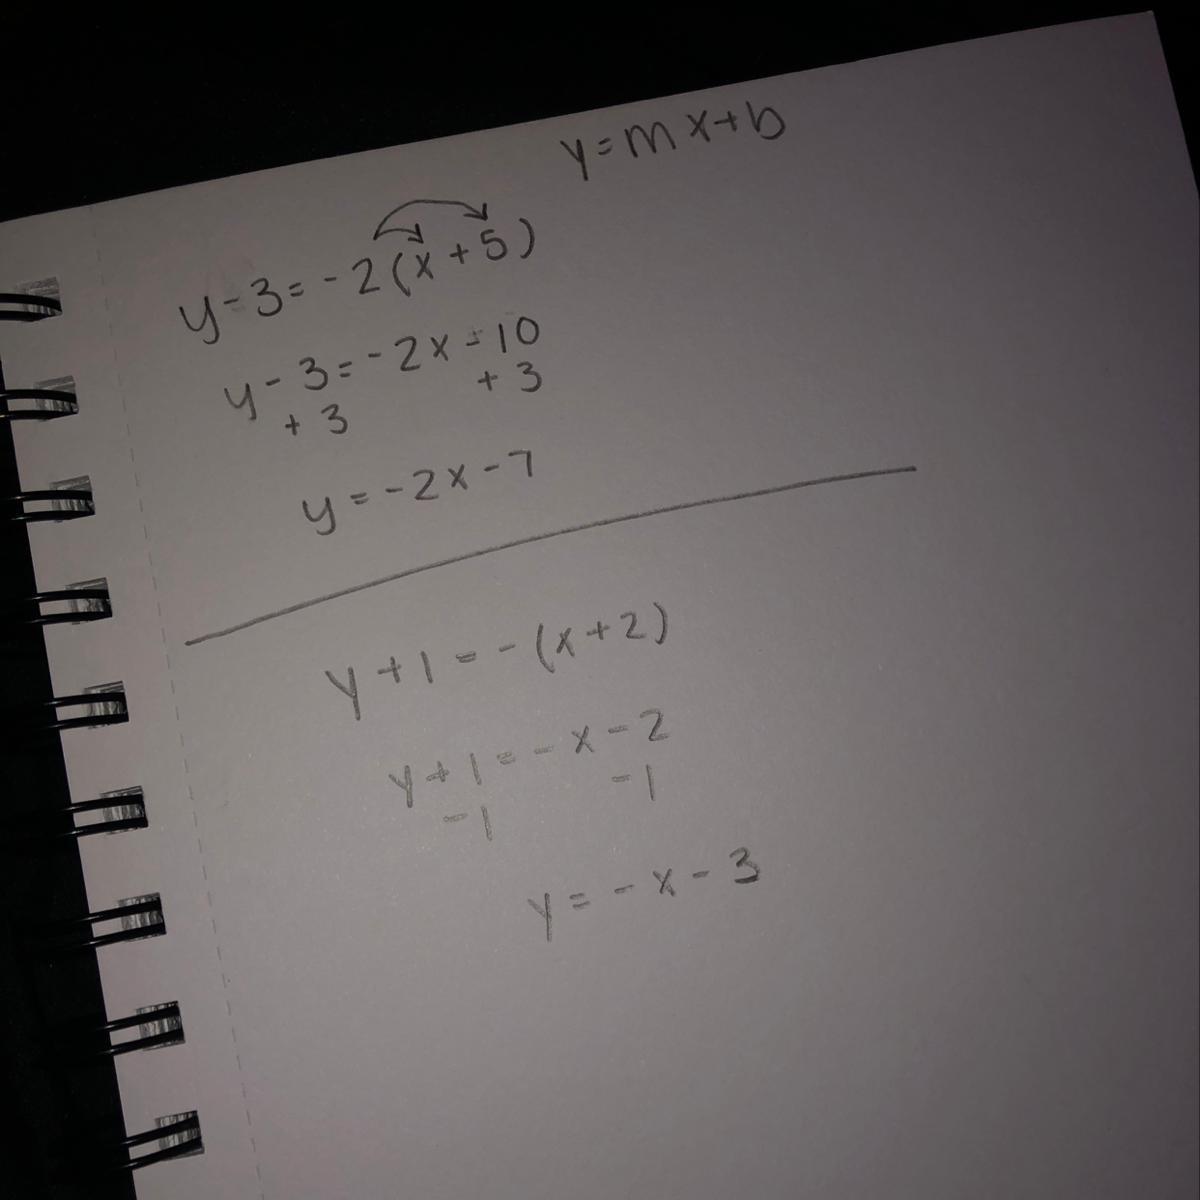 y=mx+b
y-3=-2(x+5)
y-3=-2x-10
+3 +3
y=-2x-7
y+1=-(x+2)
y+1=-x-2
-1 -1
y=-x-3